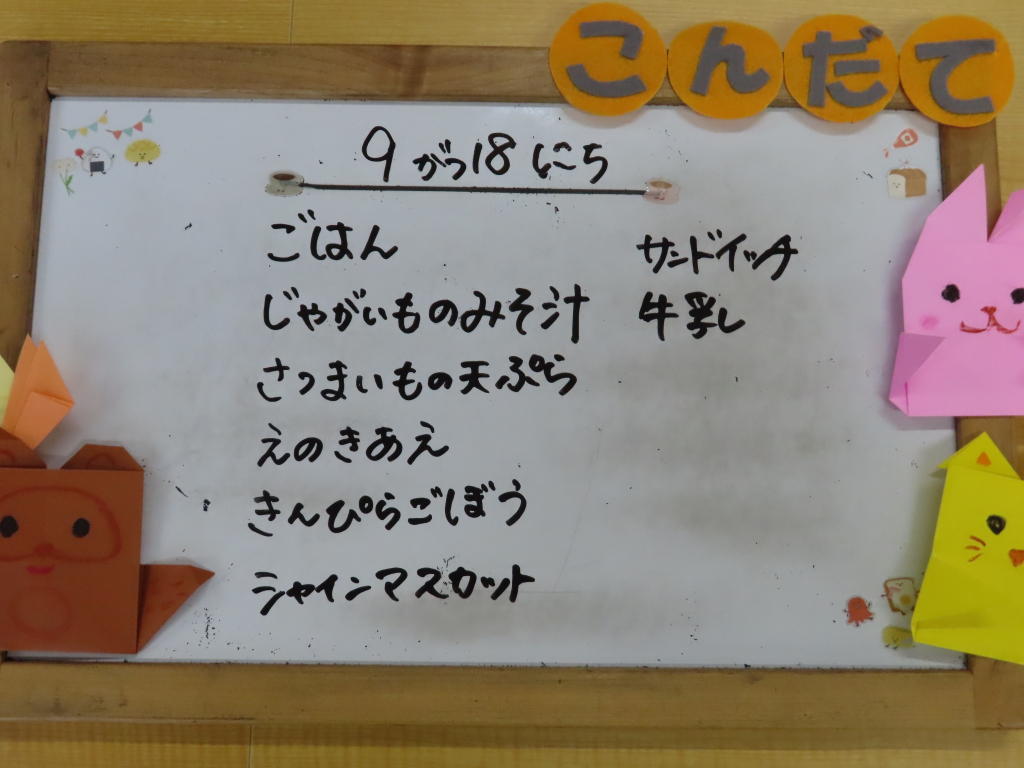 こんだて
9がつ18にち
ごはん
じゃがいものみそ汁
さつまいもの天ぷら
えのきあえ
きんぴらごぼう
シャインマスカット
サンドイッチ
牛乳